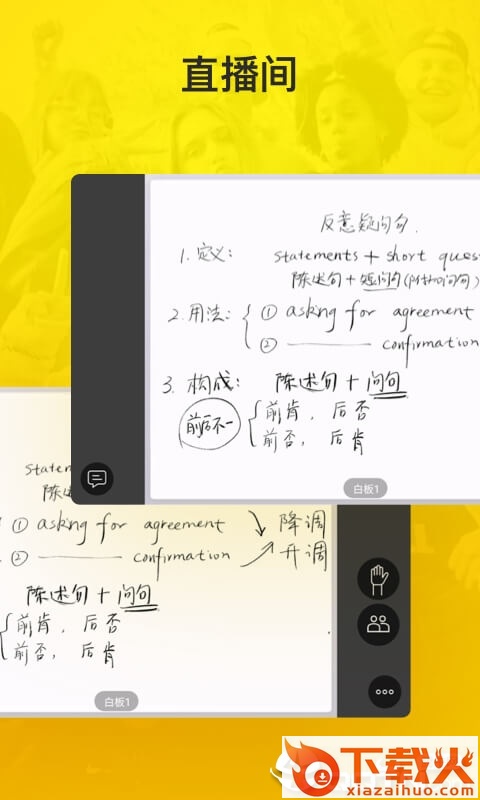 直播间
反意疑问句.
1.定义: statements + short ques
陈述句+短问句(附加问句)
2.用法: ① asking for agreement
② —— confirmation
3.构成: 陈述句+问句
前后不一
前肯,后否
前否,后肯
白板1
① asking for agreement 降调
② —— confirmation 升调
陈述句+问句
前肯,后否
前否,后肯
白板1
下载火
xiazaihuo.com